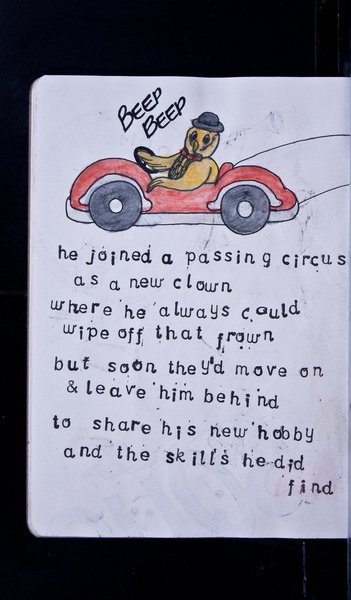 BEEP
BEEP
he joined a passing circus
as a new clown
where he always could
wipe off that frown
but soon they'd move on
& leave him behind
to share his new hobby
and the skill's he did
find